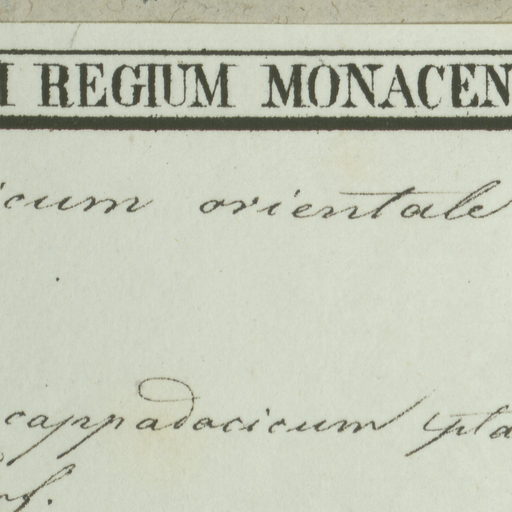 I REGIUM MONACEN
icum orientale
cappadocicum